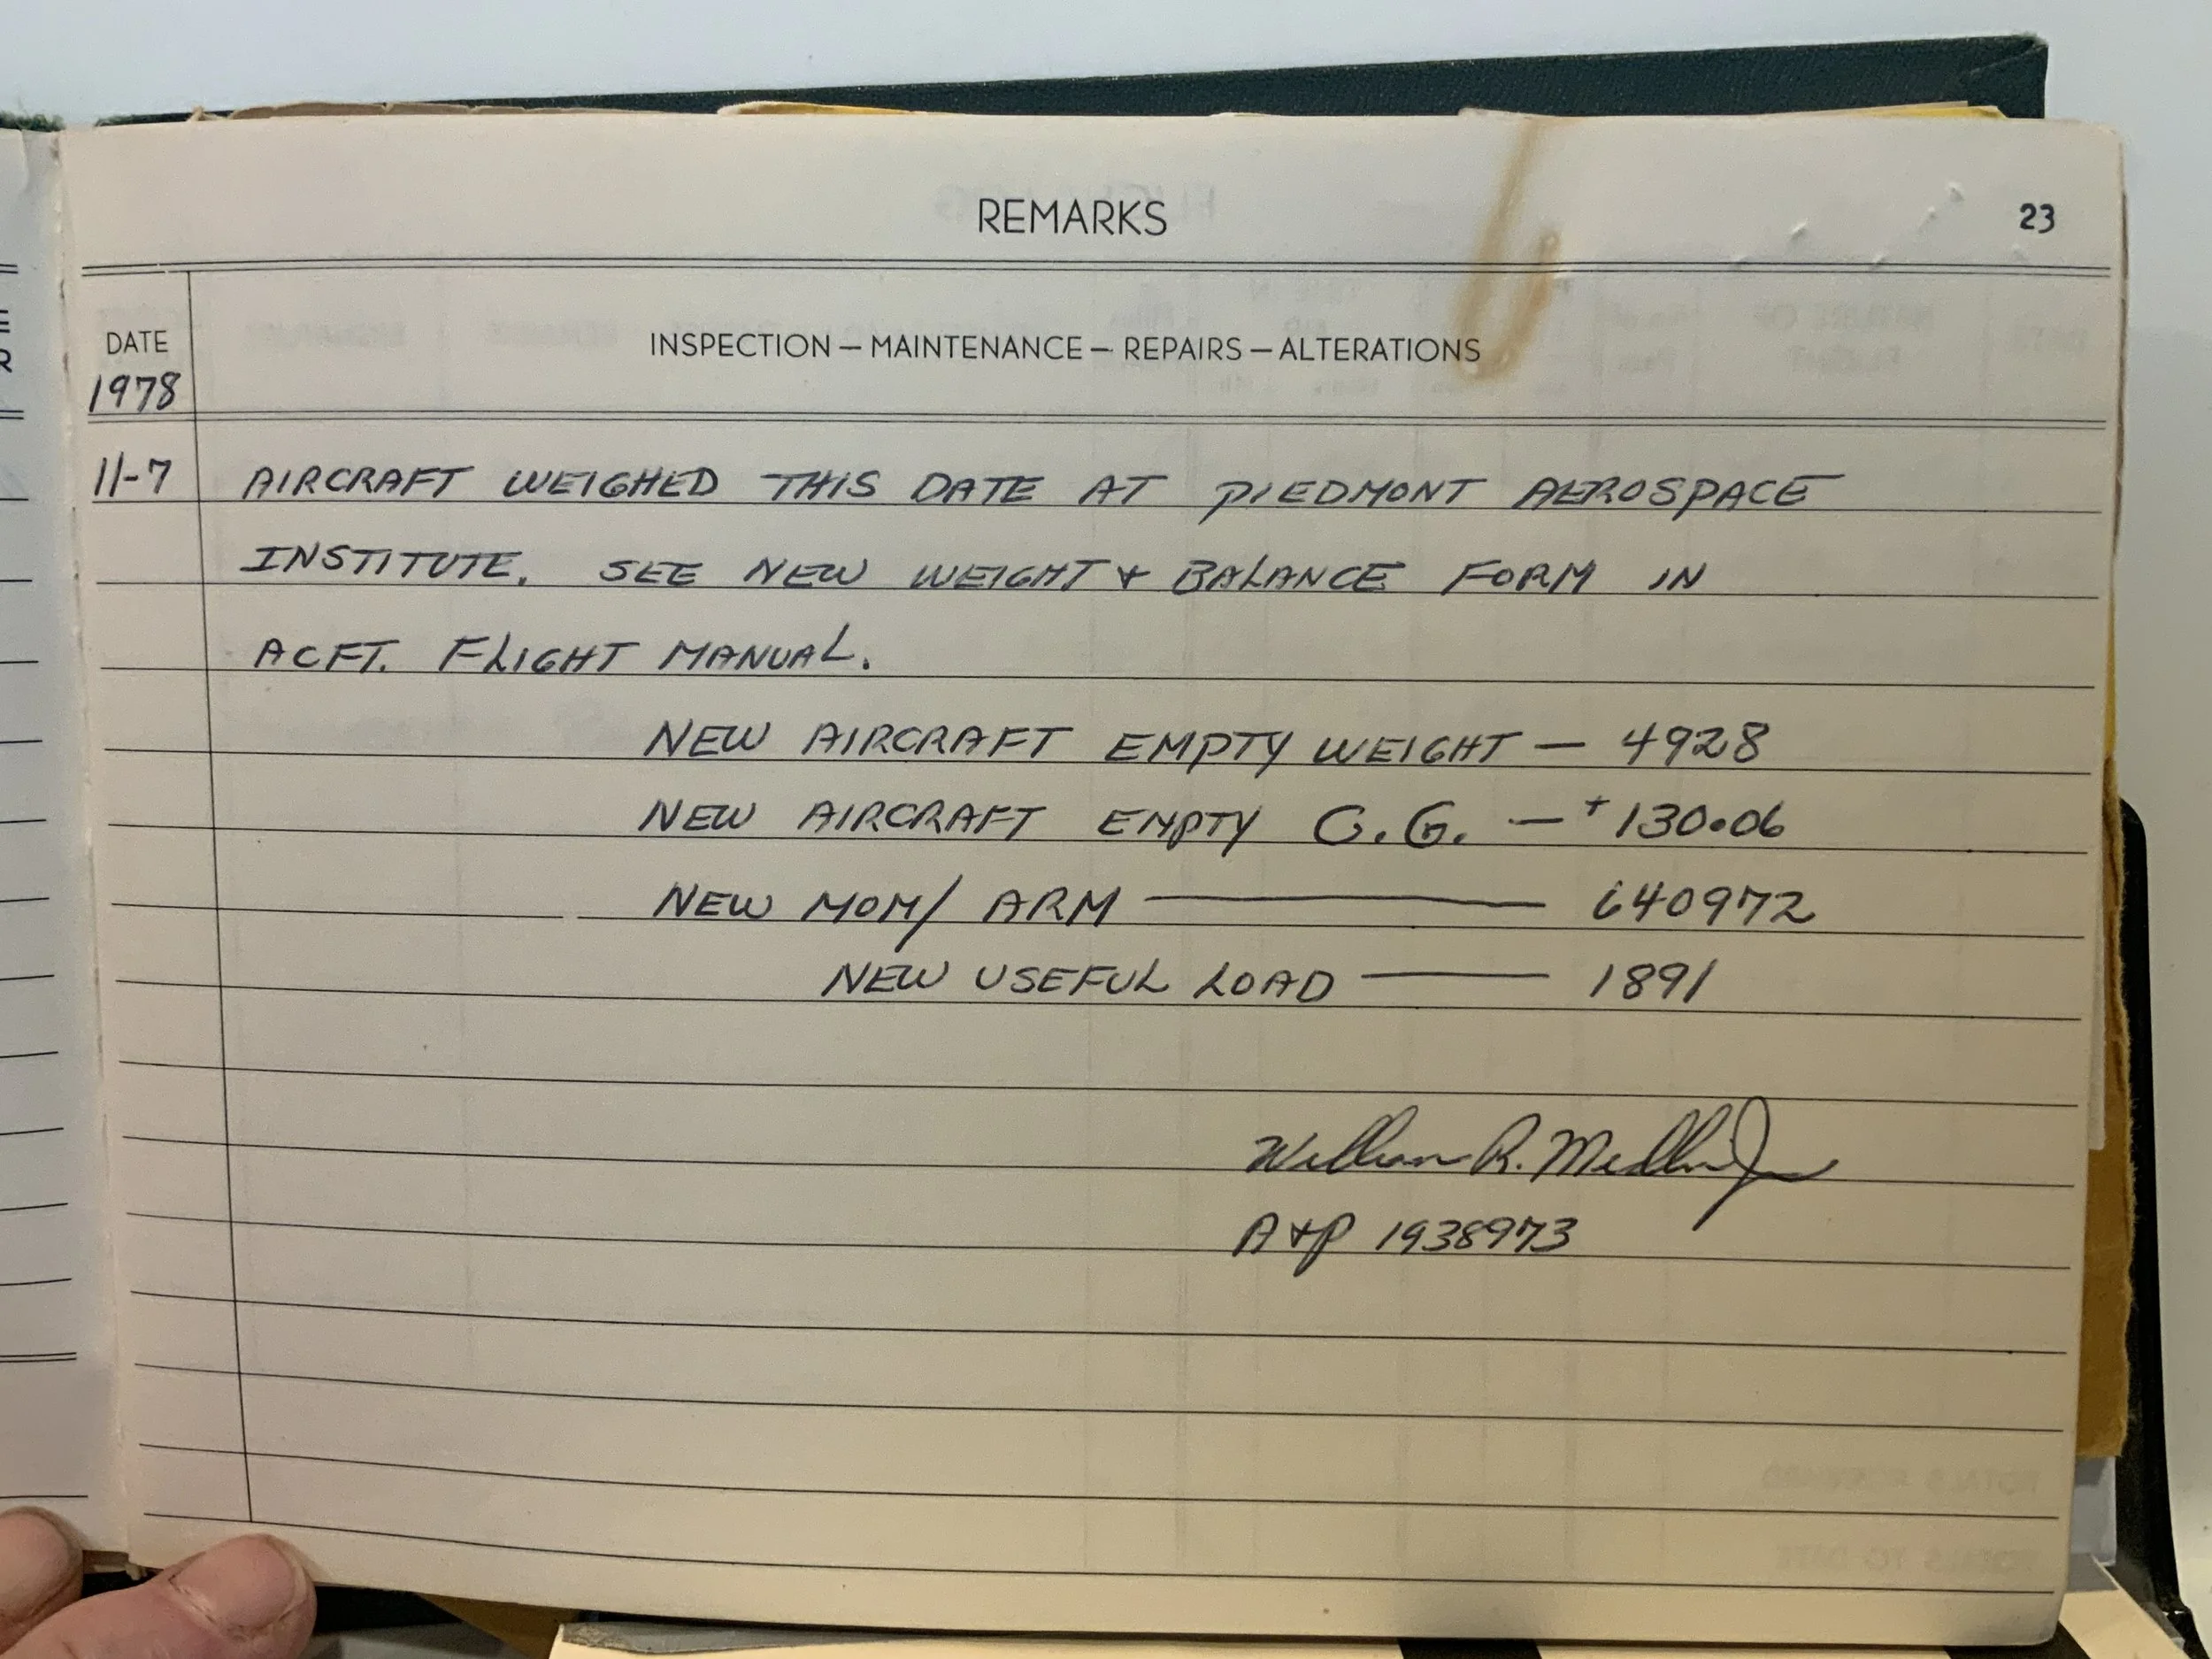 REMARKS
23
DATE
1978
INSPECTION — MAINTENANCE — REPAIRS — ALTERATIONS
11-7 AIRCRAFT WEIGHED THIS DATE AT PIEDMONT AEROSPACE
INSTITUTE. SEE NEW WEIGHT & BALANCE FORM IN
ACFT. FLIGHT MANUAL.
NEW AIRCRAFT EMPTY WEIGHT — 4928
NEW AIRCRAFT EMPTY C.G. — +130.06
NEW MOM/ ARM — 640972
NEW USEFUL LOAD — 1891
William R.
A&P 1938973